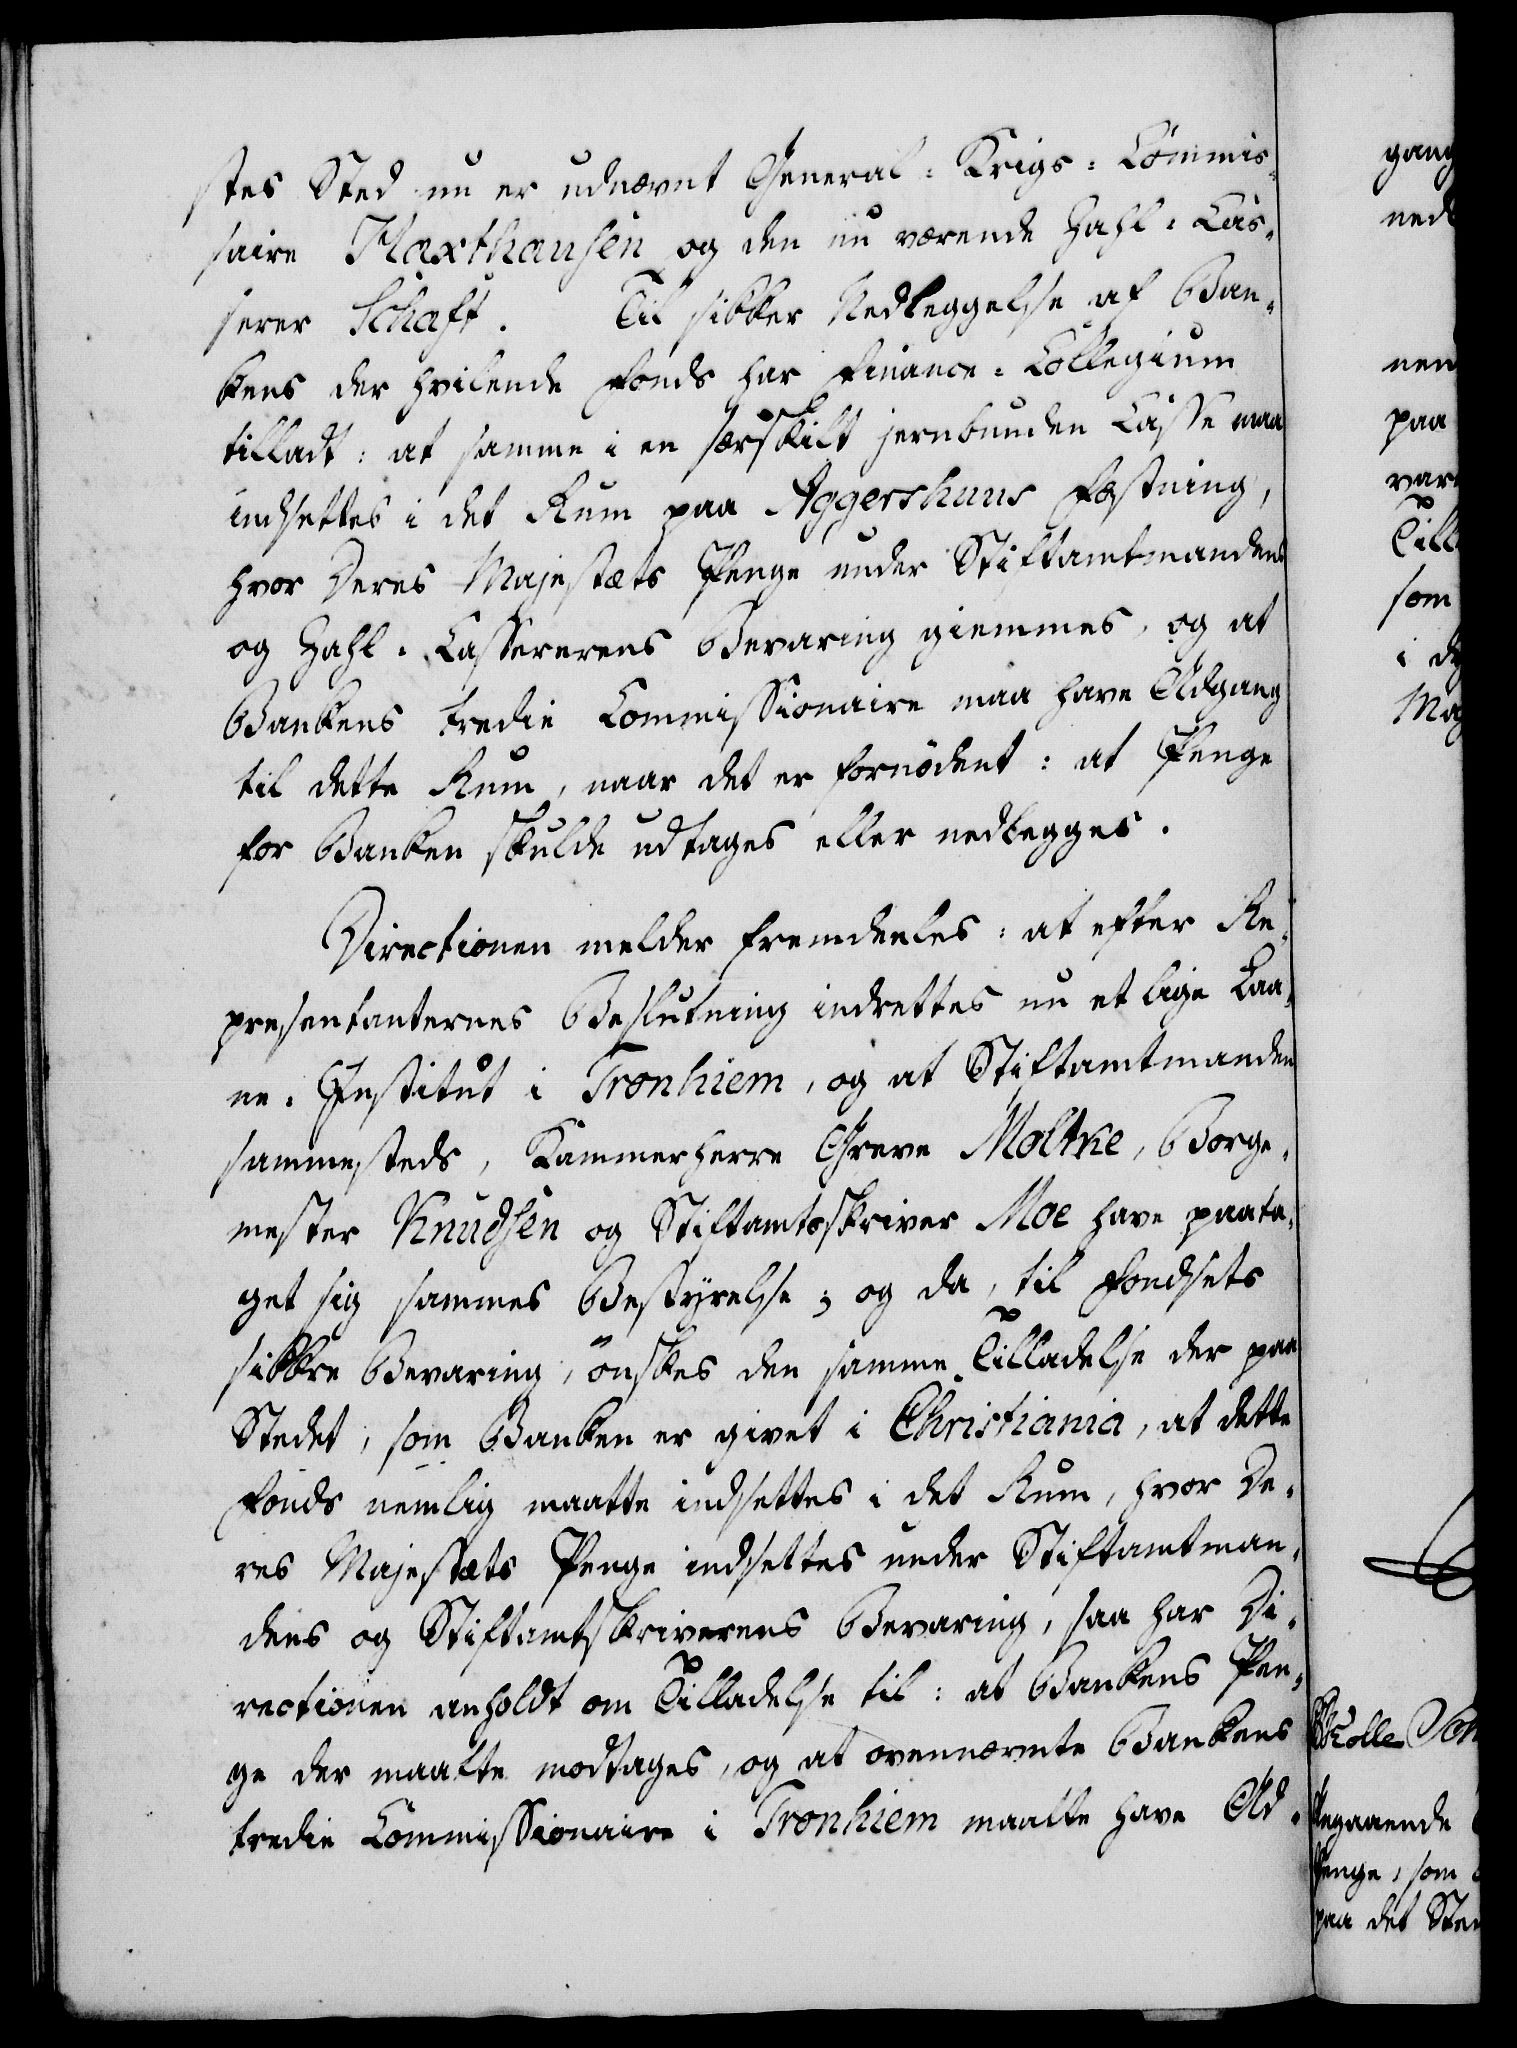 stes Sted nu er udnævnt General-Krigs-Commis-
saire Haxthausen og den nu værende Zahl-Cas-
serer Schaft. Til sikker Nedleggelse af Ban-
kens der hvilende Fonds har Finance-Collegium
tilladt: at samme i en særskilt jernbunden Casse maa
indsettes i det Rum paa Aggershuus Fæstning,
hvor Deres Majestæts Penge under Stiftamtmandens
og Zahl-Cassererens Bevaring giemmes, og at
Bankens tredie Commissionaire maa have Adgang
til dette Rum, naar det er fornødent: at Penge
for Banken skulde udtages eller nedlegges.
Directionen melder fremdeeles: at efter Re-
præsentanternes Beslutning indrettes nu et lige Laa-
ne-Institut i Tronhiem, og at Stiftamtmanden
sammesteds, Kammerherre Greve Moltke, Borge-
mester Knudsen og Stiftamtskriver Moe have paata-
get sig sammes Bestyrelse; og da, til Fondsets
sikkre Bevaring, ønskes den samme Tilladelse der paa
Stedet, som Banken er givet i Christiania, at dette
Fonds nemlig maatte indsettes i det Rum, hvor De-
res Majestæts Penge indsettes under Stiftamtman-
dens og Stiftamtskriverens Bevaring, saa har Di-
rectionen anholdt om Tilladelse til: at Bankens Pen-
ge der maatte modtages, og at ovennævnte Bankens
tredie Commissionaire i Tronhiem maatte have Ad-
gang
ned
nem
paa
var
Till
som
i d
Maj
egaaende
Penge, som
paa det Sted